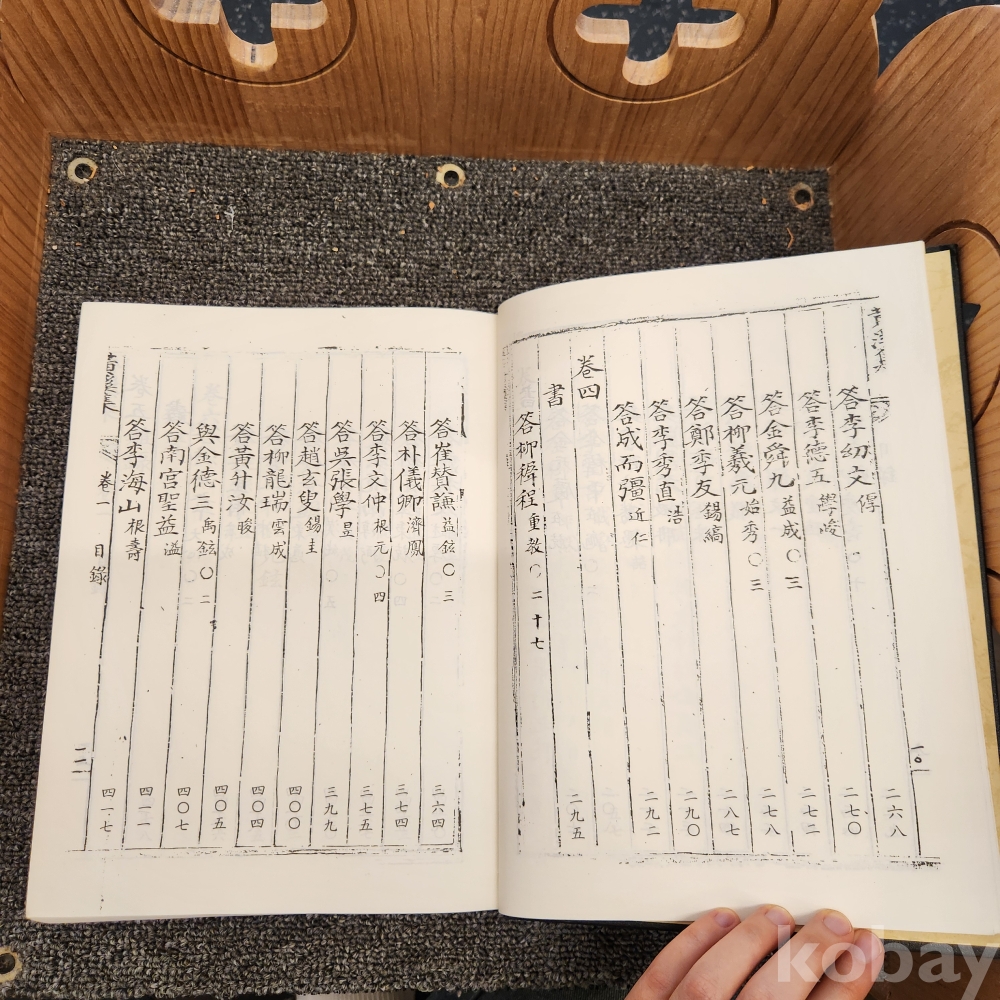 答李幼文 㝊 二六八
答李德五 學峻 二七〇
答金舜九 益成 〇三 二七二
答柳羲元 始秀 〇三 二七八
答鄭季友 錫縞 二八七
答李秀直 浩 二九〇
答成而彊 近仁 二九二
卷四
書
答柳稺程 重敎 〇二十七 二九五
一〇
答崔贊謙 益鉉 〇三 三六四
答朴儀卿 濟鳳 三七四
答李文仲 根元 〇四 三七五
答吳張學 昱
答趙玄叟 錫圭 三九九
答柳龍瑞 雲成 四〇〇
答黃升汝 晙 四〇四
與金德三 禹鉉 〇二 四〇五
答南宮聖益 謚 四〇七
答李海山 根壽 四一一
四一七
集 卷一 目錄 一一
kobay